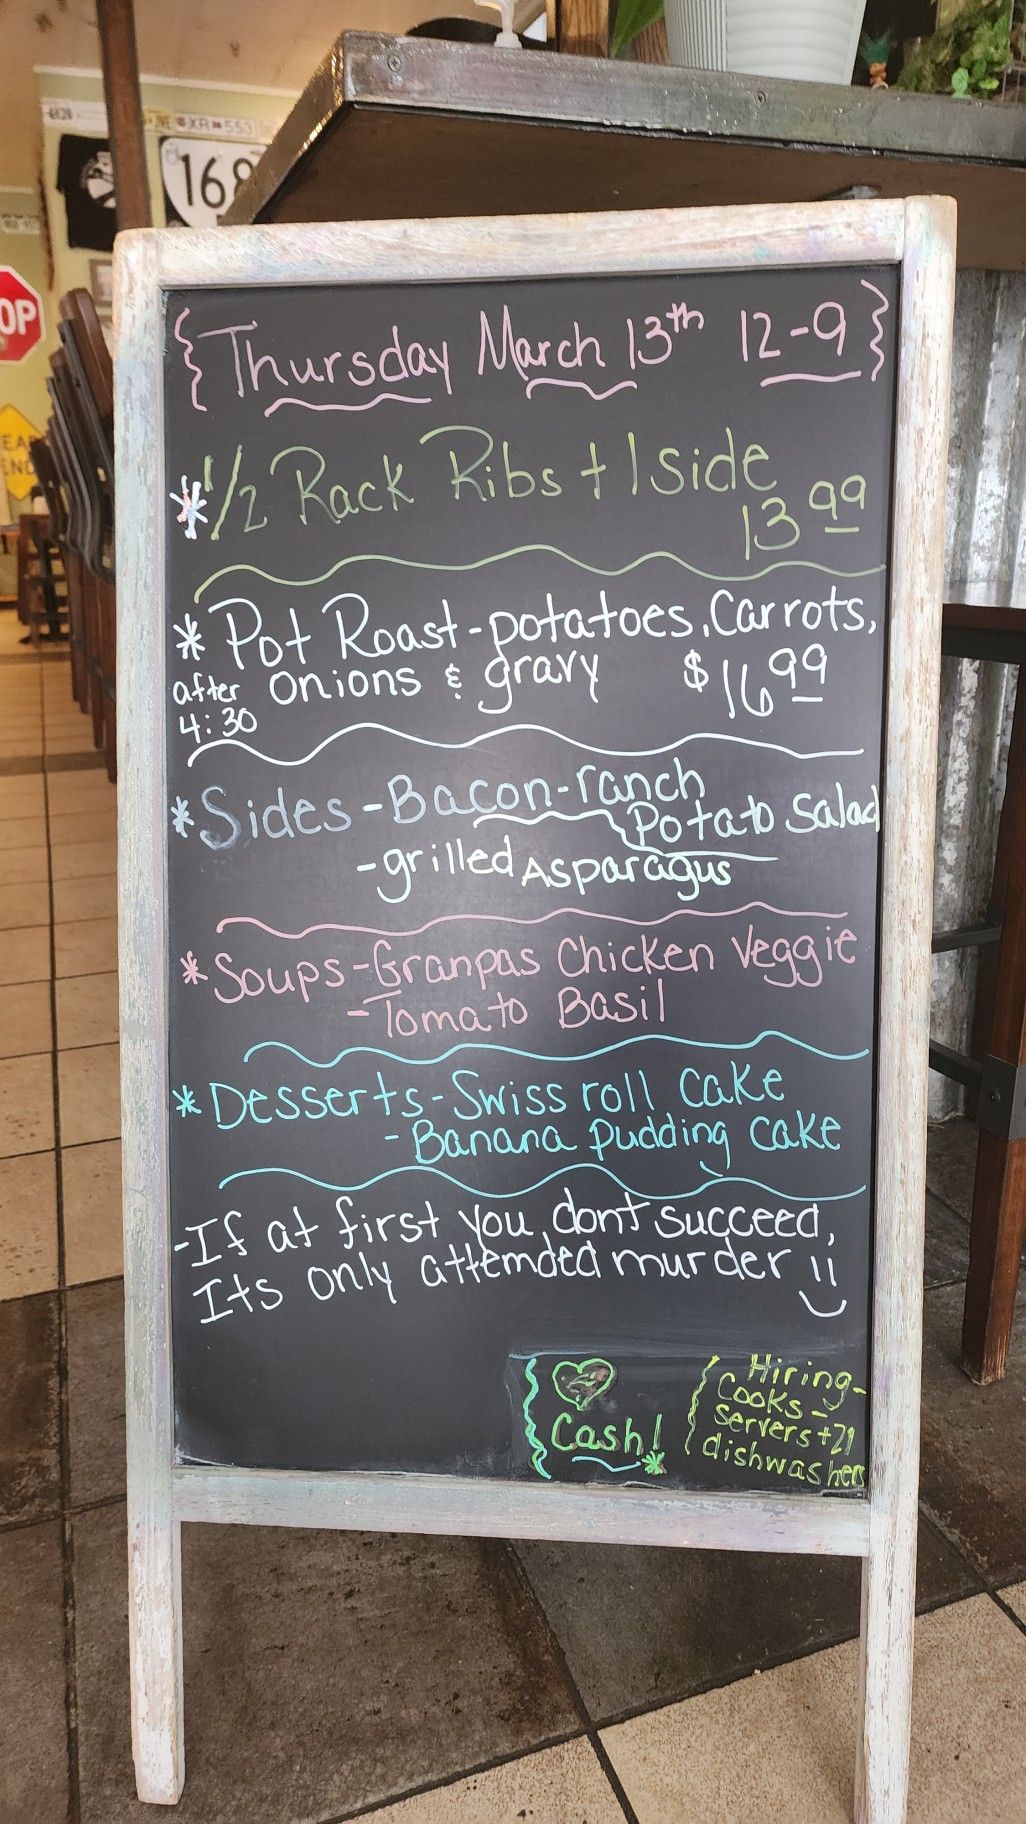 4620
XR 553
168
OP
EA
END
{Thursday March 13th 12-9}
*1/2 Rack Ribs + 1 side
13 99
*Pot Roast-potatoes, Carrots,
after onions & gravy $16 99
4:30
*Sides-Bacon-ranch
Potato Salad
-grilled Asparagus
*Soups-Granpas Chicken Veggie
-Tomato Basil
*Desserts-Swiss roll Cake
-Banana pudding Cake
-If at first you dont succeed,
Its only attemded murder
Cash!
Hiring-
Cooks-
Servers +21
dishwashers